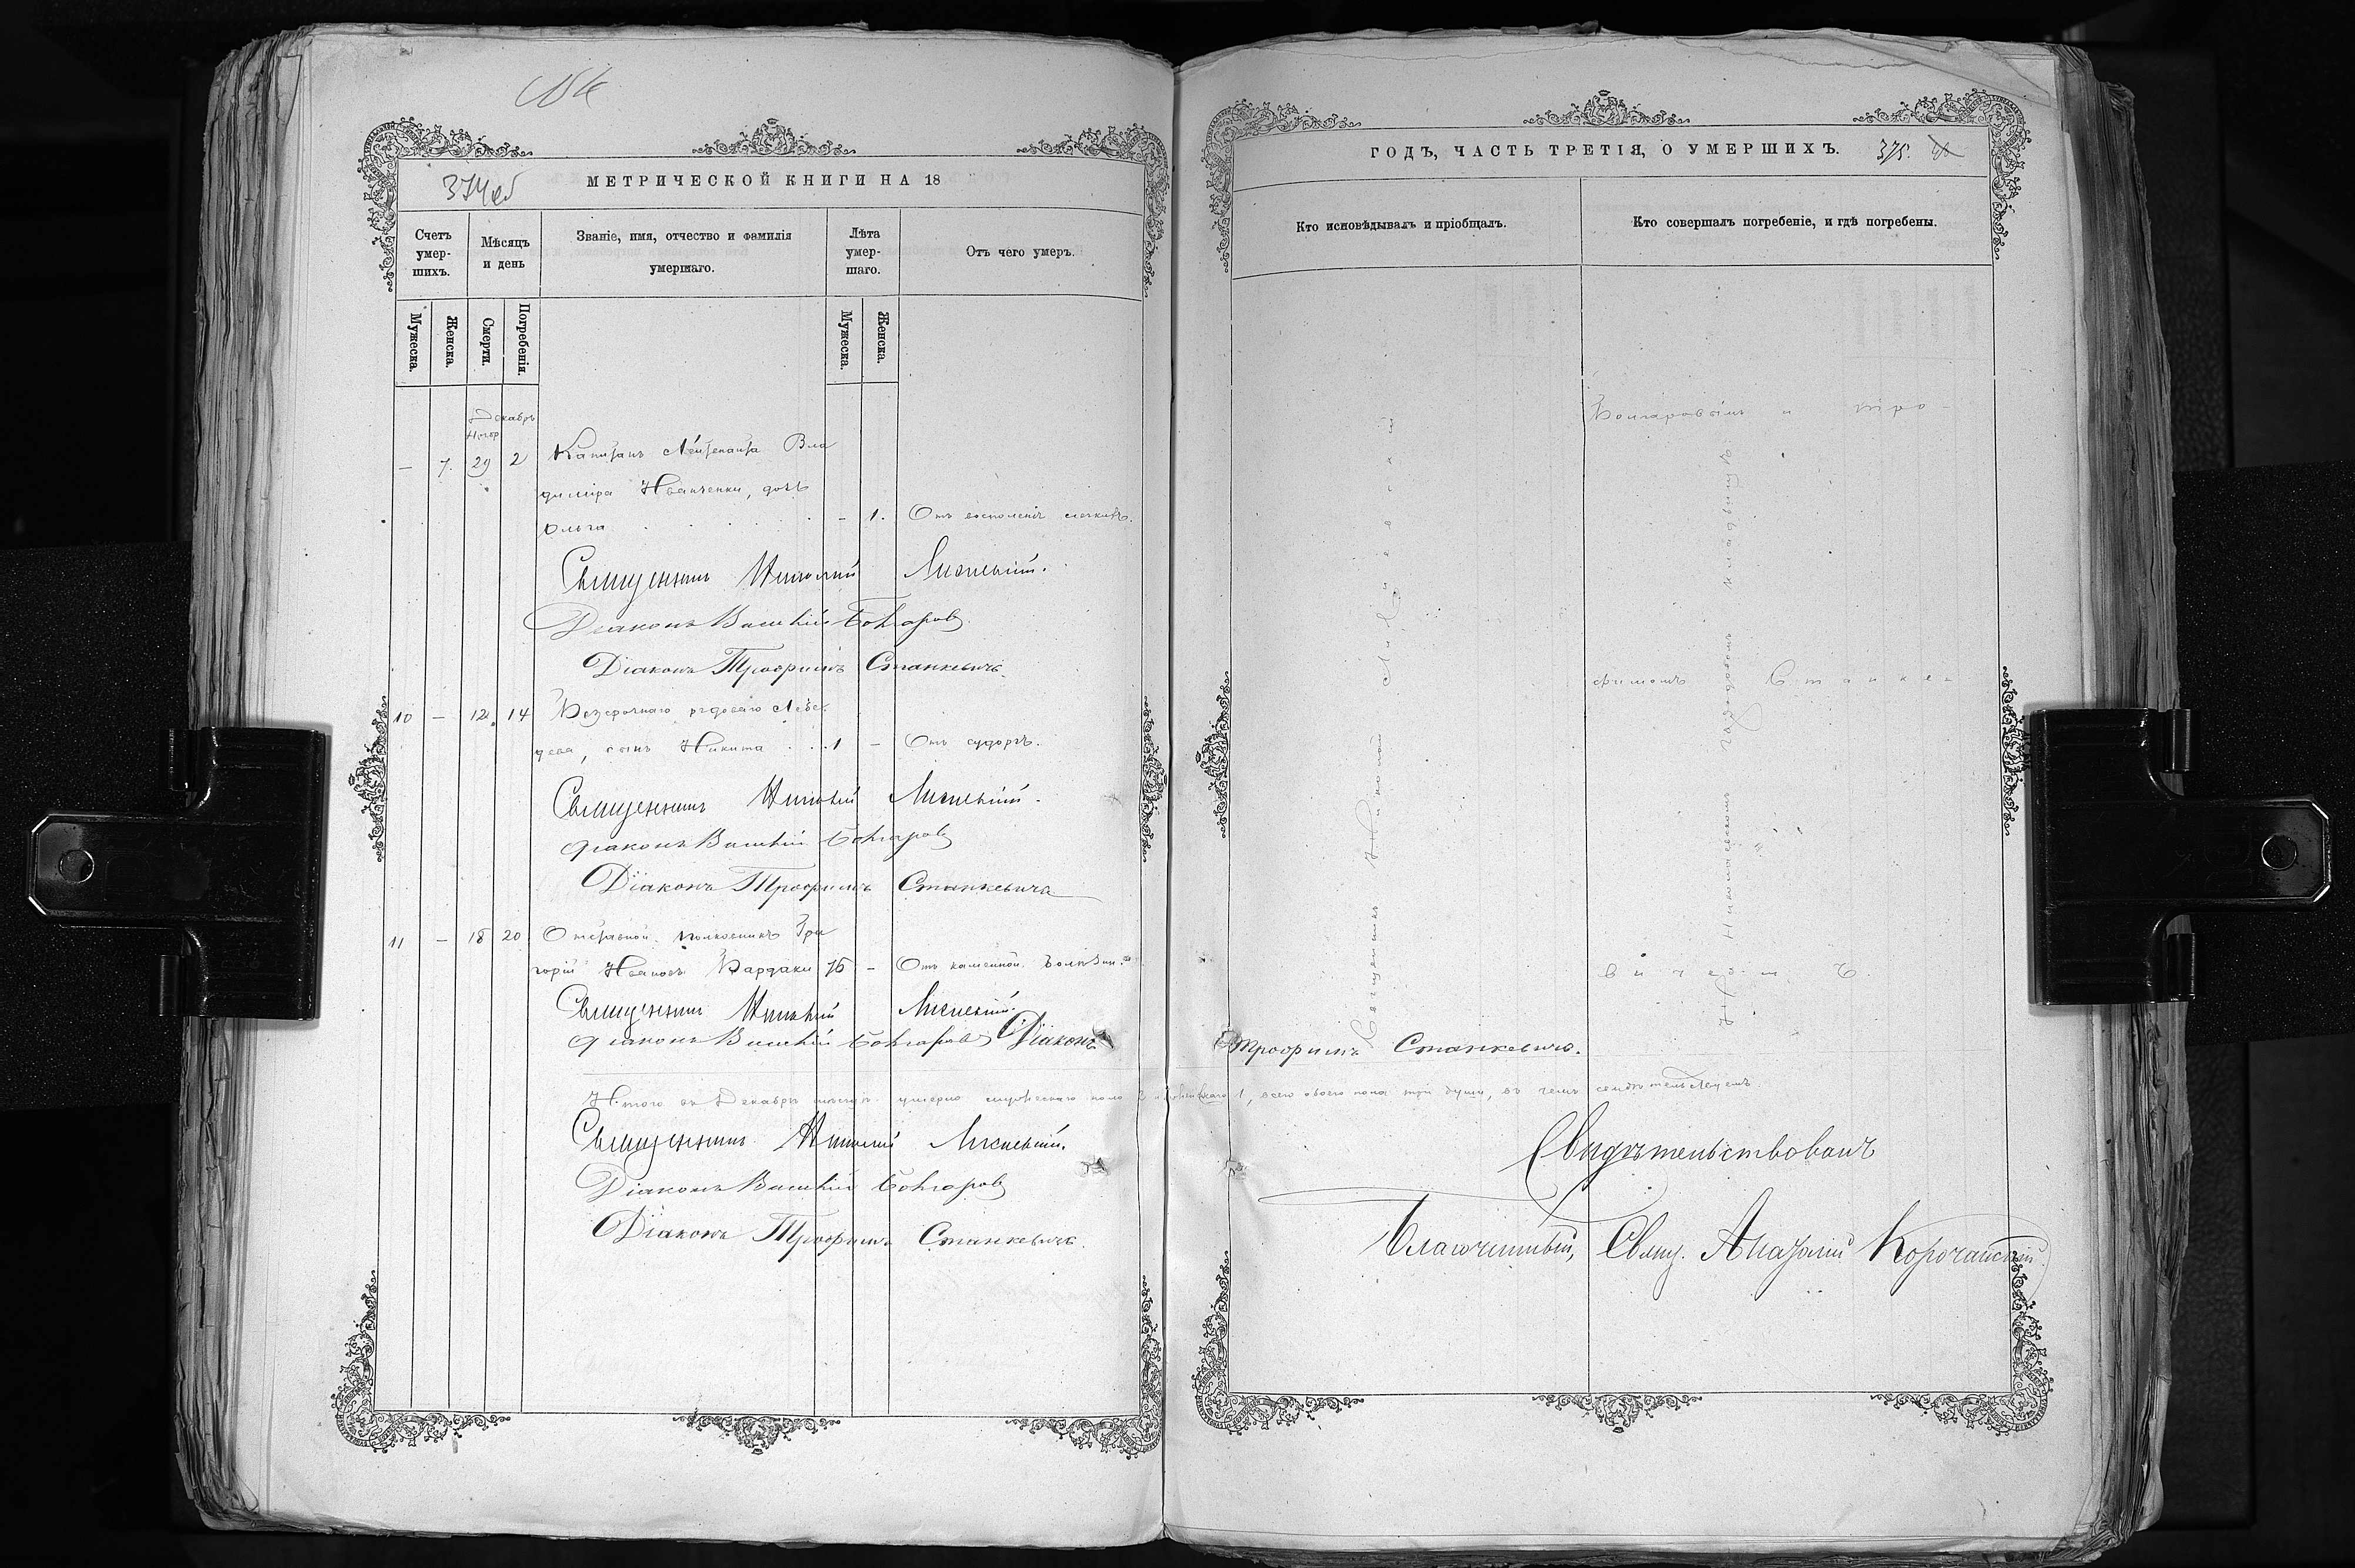 374об
МЕТРИЧЕСКОЙ КНИГИ НА 18
Счетъ умер-шихъ.
Мѣсяцъ и день
Званіе, имя, отчество и фамилія умершаго.
Лѣта умер-шаго.
Отъ чего умеръ.
Мужеска.
Женска.
Смерти.
Погребенія.
Мужеска.
Женска.
Декабрь
Ноябр
— 7. 29 2 Капитанъ Лейтенанта Вла
диміра Иванченки, дочь
Ольга - 1. Отъ воспаленія легкихъ.
Священникъ Николай
Діаконъ Василій Болгаровъ
Діаконъ Трофимъ Станкевичъ.
10 — 12. 14 Безсрочнаго рядоваго Лебе-
дева, сынъ Никита 1 — Отъ судоргъ.
Священникъ Николай
Діаконъ Василій Болгаровъ
Діаконъ Трофимъ Станкевичъ
11 — 18 20. Отставной полковникъ Гри
горій Ивановъ Бардаки 76 — Отъ каменной болѣзни.
Священникъ Николай
Діаконъ Василій Болгаровъ Діаконъ
Итого въ Декабрѣ мѣсяцѣ умерло мужескаго пола 2 женскаго 1, всего обоего пола три души, въ чемъ свидѣтельствуемъ
Священникъ Николай
Діаконъ Василій Болгаровъ
Діаконъ Трофимъ Станкевичъ.
ГОДЪ, ЧАСТЬ ТРЕТІЯ, О УМЕРШИХЪ. 375.
Кто исповѣдывалъ и пріобщалъ.
Кто совершалъ погребеніе, и гдѣ погребены.
Священникъ Николай
Болгаровымъ и Тро-
фимомъ Станке-
вичемъ.
На Николаевскомъ городовомъ кладбищѣ
Трофимъ Станкевичъ.
Свидѣтельствовалъ
Благочинный, Свящ. Анатолій Корочанскій.